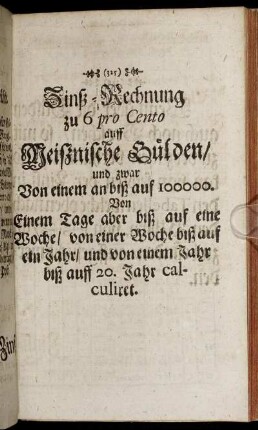 (325)
Zinß-Rechnung
zu 6 pro Cento
auff
Meißnische Gülden/
und zwar
Von einem an biß auf 100000.
Von
Einem Tage aber biß auf eine
Woche/ von einer Woche biß auf
ein Jahr/ und von einem Jahr
biß auff 20. Jahr cal-
culiret.